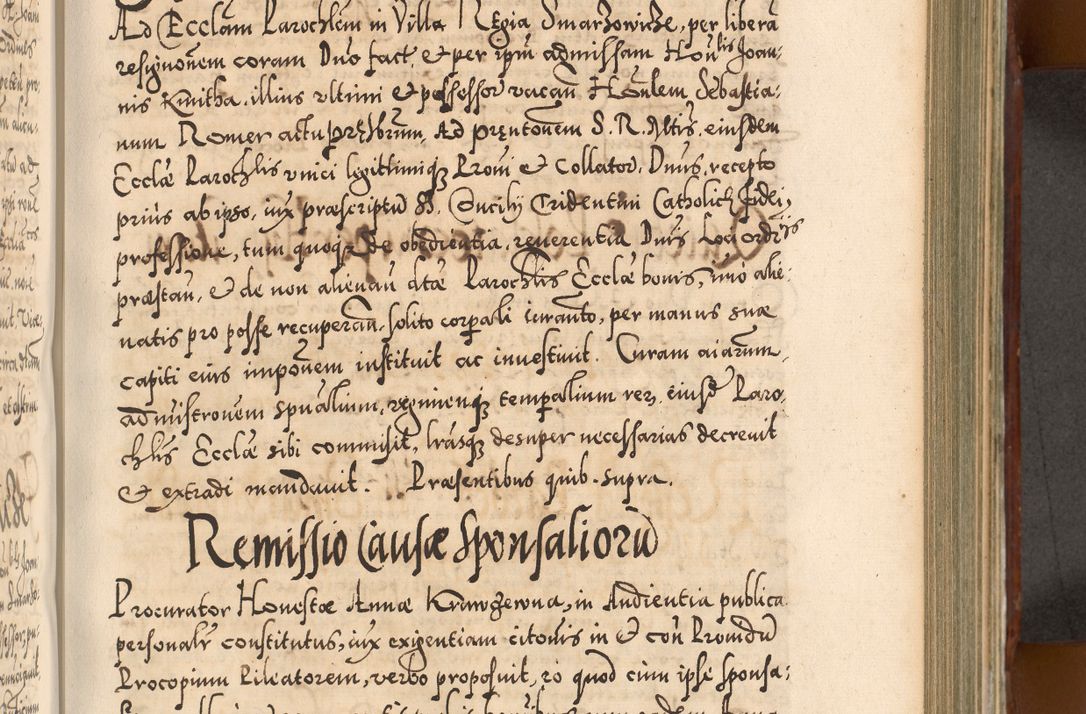 Ad Ecclam Parochlem in Villa Regia Smarzowicze, per liberã
resignonem coram Dno fact. et per ipm admissam Honlis Joan:
nis Kmitha. illius ultimi et possessor. vacan Honlem Sebastia:
num Romer actu prsbrum, Ad prntonem S. R. Mltis. eiusdem
Ecclæ Parochlis unici legittimiq Proui et Collator. Dnus. recepto
prius ab ipso, iux præscriptũ SS. Concilij Tridentini Catholicæ fidei,
professione, tum quoq de obedientia, reuerentia Dnis Loci ordrijs
præstan, et de non alienan dtæ Parochlis Ecclæ bonis, imò alie:
natis pro posse recuperan. solito corpali iuranto, per manus suæ
capiti eius imponem instituit ac inuestiuit. Curam aiarum,
administronem spualium, regimenq tempalium rer. eiusd Paro,
chlis Ecclæ sibi commisit, lrasq desuper necessarias decreuit
et extradi mandauit. Præsentibus quib. supra.
Remissio Causæ Sponsaliorũ
Procurator Honestæ Annæ Krawczewna, in Audientia publica
personalr constitutus, iux exigentiam citonis in et con Prouidũ
Procopium Pileatorem, verbo proposuit, eo quod cum ipse sponsa: